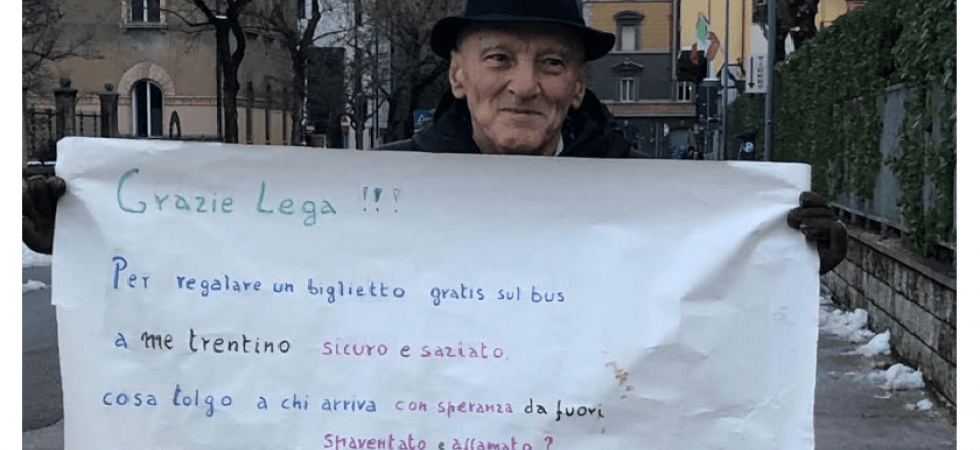 Grazie Lega !!!
Per regalare un biglietto gratis sul bus
a me trentino sicuro e saziato,
cosa tolgo a chi arriva con speranza da fuori
spaventato e affamato ?